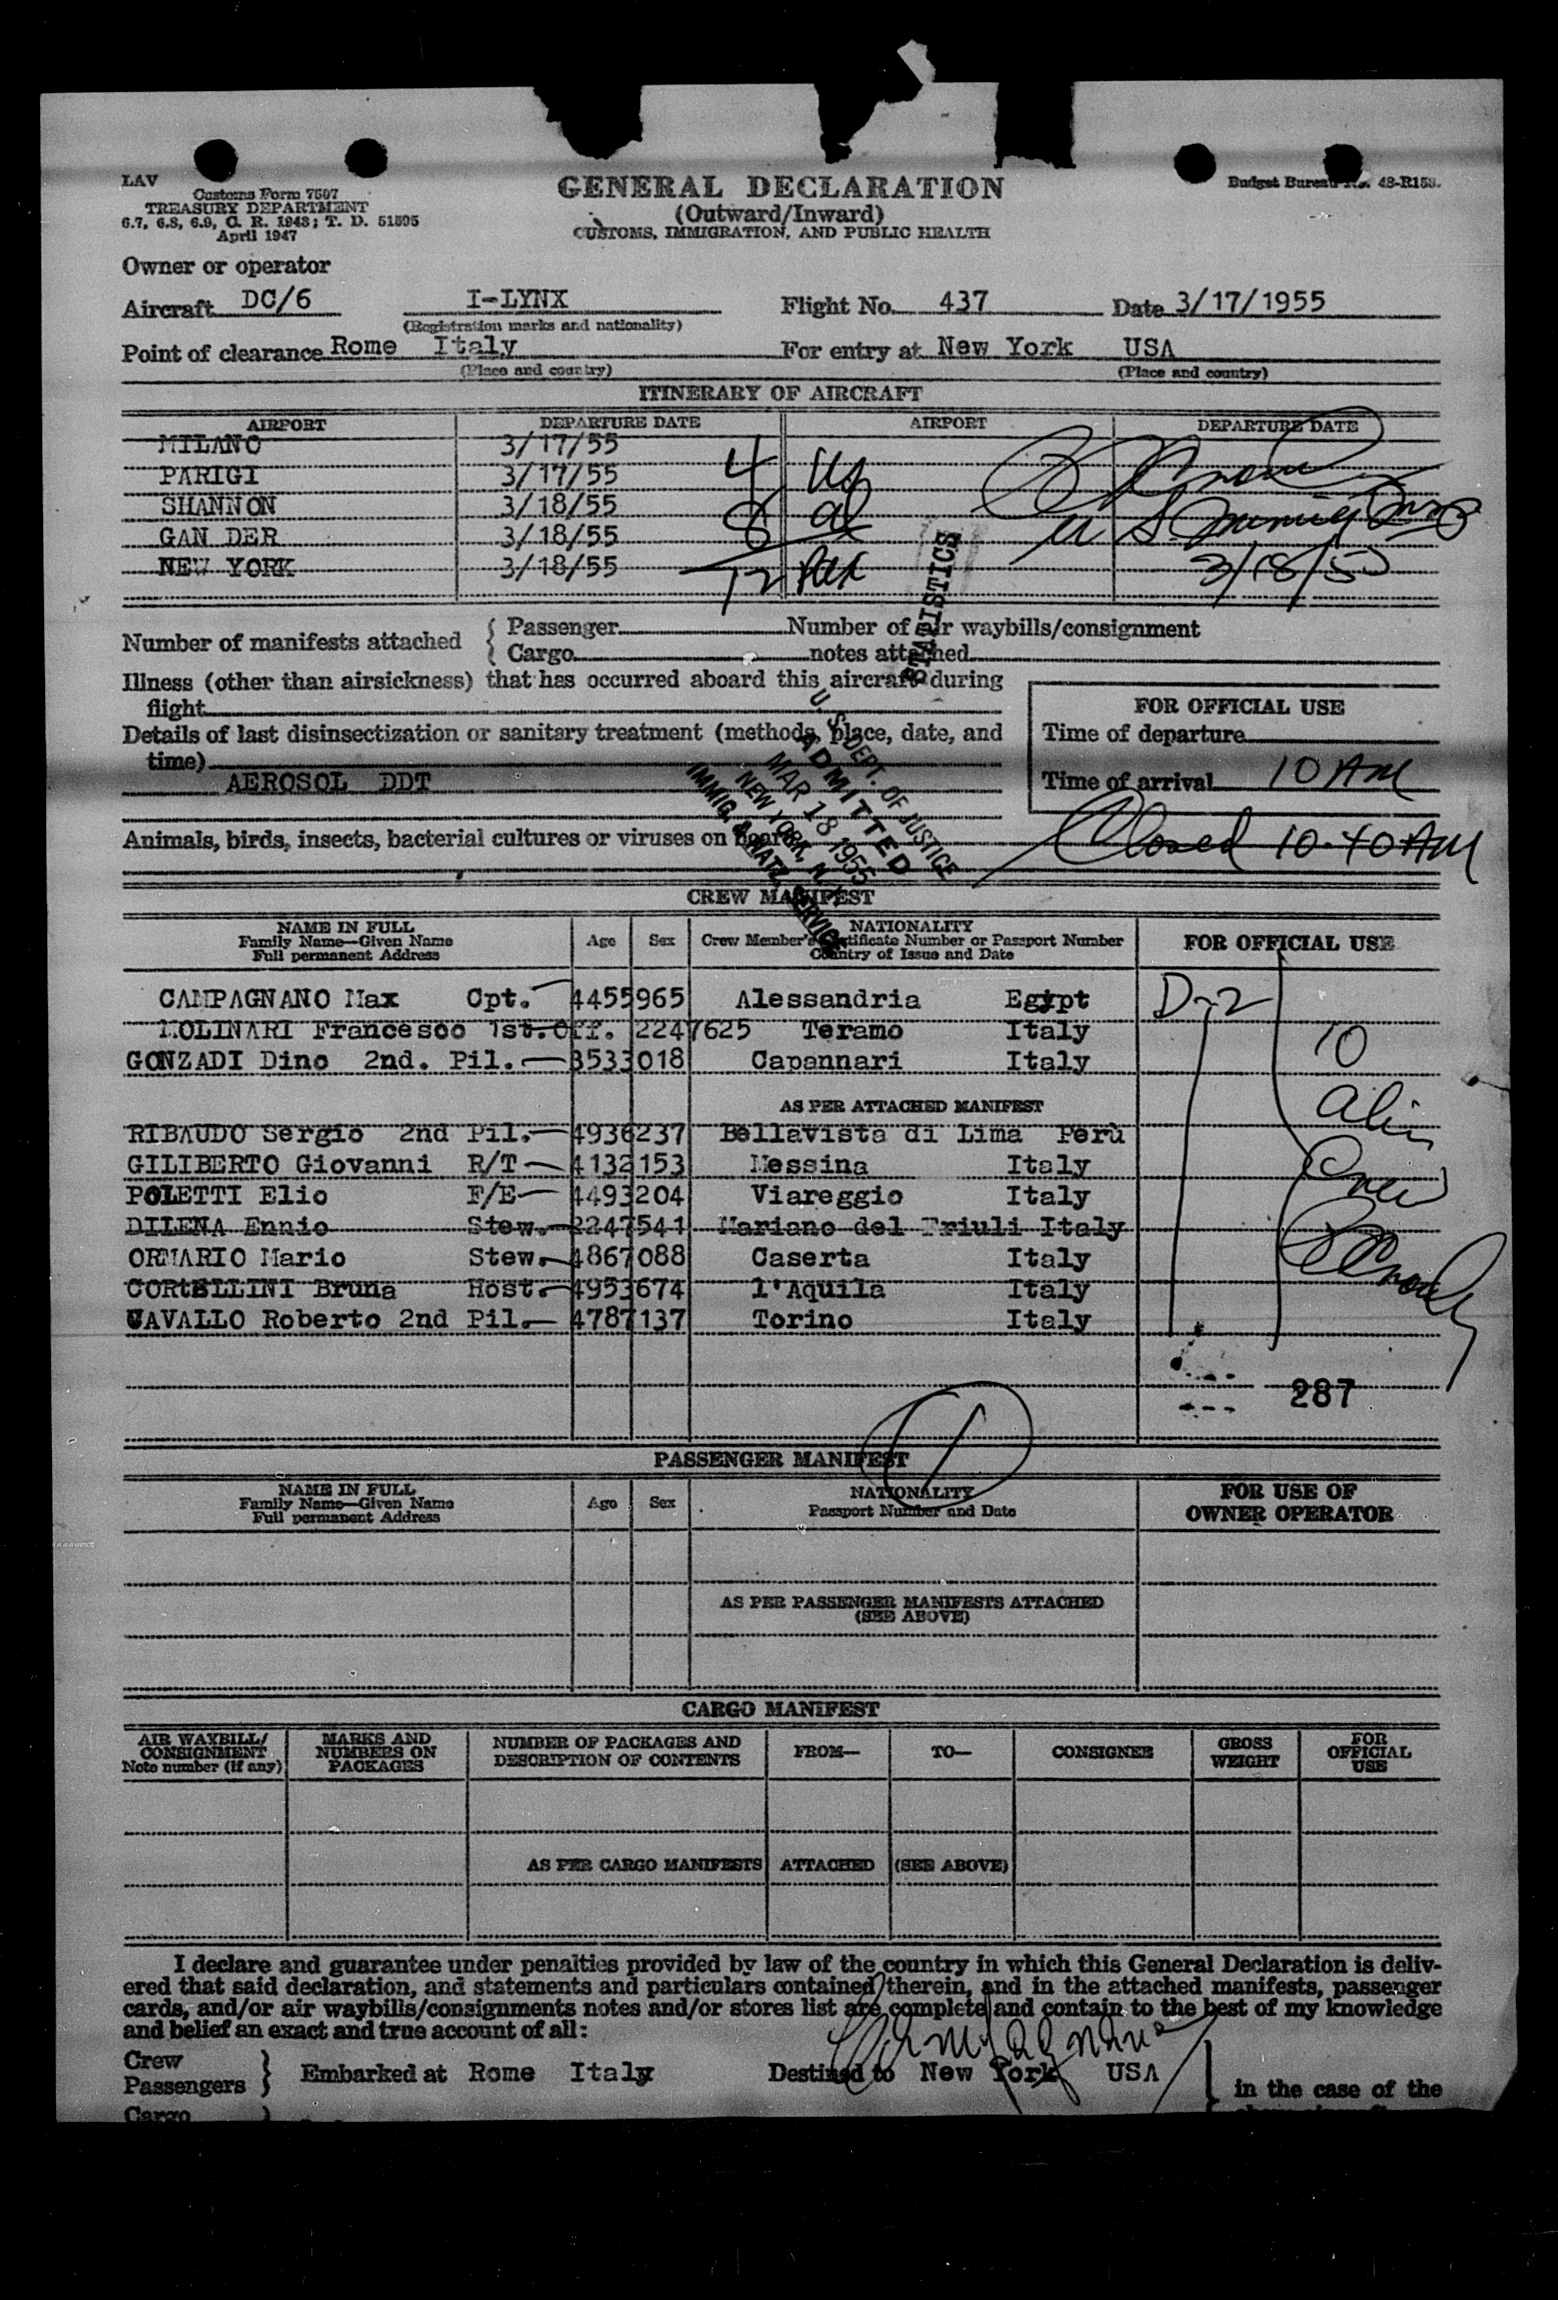 LAV
Customs Form 7507
TREASURY DEPARTMENT
6.7, 6.8, 6.9, C. R. 1943; T. D. 51595
April 1947
GENERAL DECLARATION
(Outward/Inward)
CUSTOMS, IMMIGRATION, AND PUBLIC HEALTH
Budget Bureau No. 48-R158.
Owner or operator
Aircraft DC/6 I-LYNX Flight No. 437 Date 3/17/1955
(Registration marks and nationality)
Point of clearance Rome Italy For entry at New York USA
(Place and country) (Place and country)
ITINERARY OF AIRCRAFT
AIRPORT DEPARTURE DATE AIRPORT DEPARTURE DATE
MILANO 3/17/55
PARIGI 3/17/55 4 US
SHANNON 3/18/55 8 al
GAN DER 3/18/55
NEW YORK 3/18/55 12 Pax
STATISTICS
Number of manifests attached { Passenger Number of air waybills/consignment
Cargo notes attached
Illness (other than airsickness) that has occurred aboard this aircraft during
flight
Details of last disinsectization or sanitary treatment (methods, place, date, and
time)
AEROSOL DDT
FOR OFFICIAL USE
Time of departure
Time of arrival 10 AM
Closed 10.40 AM
Animals, birds, insects, bacterial cultures or viruses on board
U. S. DEPT. OF JUSTICE
ADMITTED
MAR 18 1955
NEW YORK, N. Y.
IMMIG. & NATZ. SERVICE
CREW MANIFEST
NAME IN FULL
Family Name—Given Name
Full permanent Address
Age Sex
NATIONALITY
Crew Member's Certificate Number or Passport Number
Country of Issue and Date
FOR OFFICIAL USE
CAMPAGNANO Max Cpt. 4455965 Alessandria Egypt D-2
MOLINARI Francesco 1st.Off. 2247625 Teramo Italy 10
GONZADI Dino 2nd. Pil. 3533018 Capannari Italy
AS PER ATTACHED MANIFEST
RIBAUDO Sergio 2nd Pil. 4936237 Bellavista di Lima Perù
GILIBERTO Giovanni R/T 4132153 Messina Italy
POLETTI Elio F/E 4493204 Viareggio Italy
DILENA Ennio Stew. 2247541 Mariano del Friuli Italy
ORMARIO Mario Stew. 4867088 Caserta Italy
CORTELLINI Bruna Host. 4953674 l'Aquila Italy
CAVALLO Roberto 2nd Pil. 4787137 Torino Italy
Crew
287
1
PASSENGER MANIFEST
NAME IN FULL
Family Name—Given Name
Full permanent Address
Age Sex
NATIONALITY
Passport Number and Date
FOR USE OF
OWNER OPERATOR
AS PER PASSENGER MANIFESTS ATTACHED
(SEE ABOVE)
CARGO MANIFEST
AIR WAYBILL/
CONSIGNMENT
Note number (if any)
MARKS AND
NUMBERS ON
PACKAGES
NUMBER OF PACKAGES AND
DESCRIPTION OF CONTENTS
FROM—
TO—
CONSIGNEE
GROSS
WEIGHT
FOR
OFFICIAL
USE
AS PER CARGO MANIFESTS ATTACHED (SEE ABOVE)
I declare and guarantee under penalties provided by law of the country in which this General Declaration is deliv-
ered that said declaration, and statements and particulars contained therein, and in the attached manifests, passenger
cards, and/or air waybills/consignments notes and/or stores list are complete and contain to the best of my knowledge
and belief an exact and true account of all:
Crew
Passengers } Embarked at Rome Italy Destined to New York USA
in the case of the
Cargo